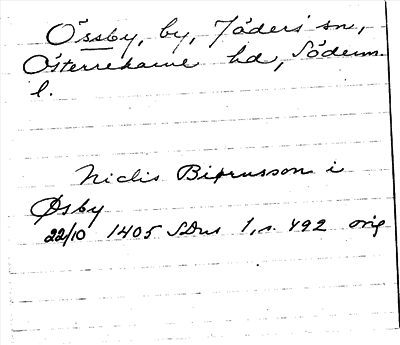 Össby, by, Jäders sn,
Österrekarne hd, Söderm.
l.
Niclis Biærnsson i
Øsby
22/10 1405 SDns 1, s. 492 orig